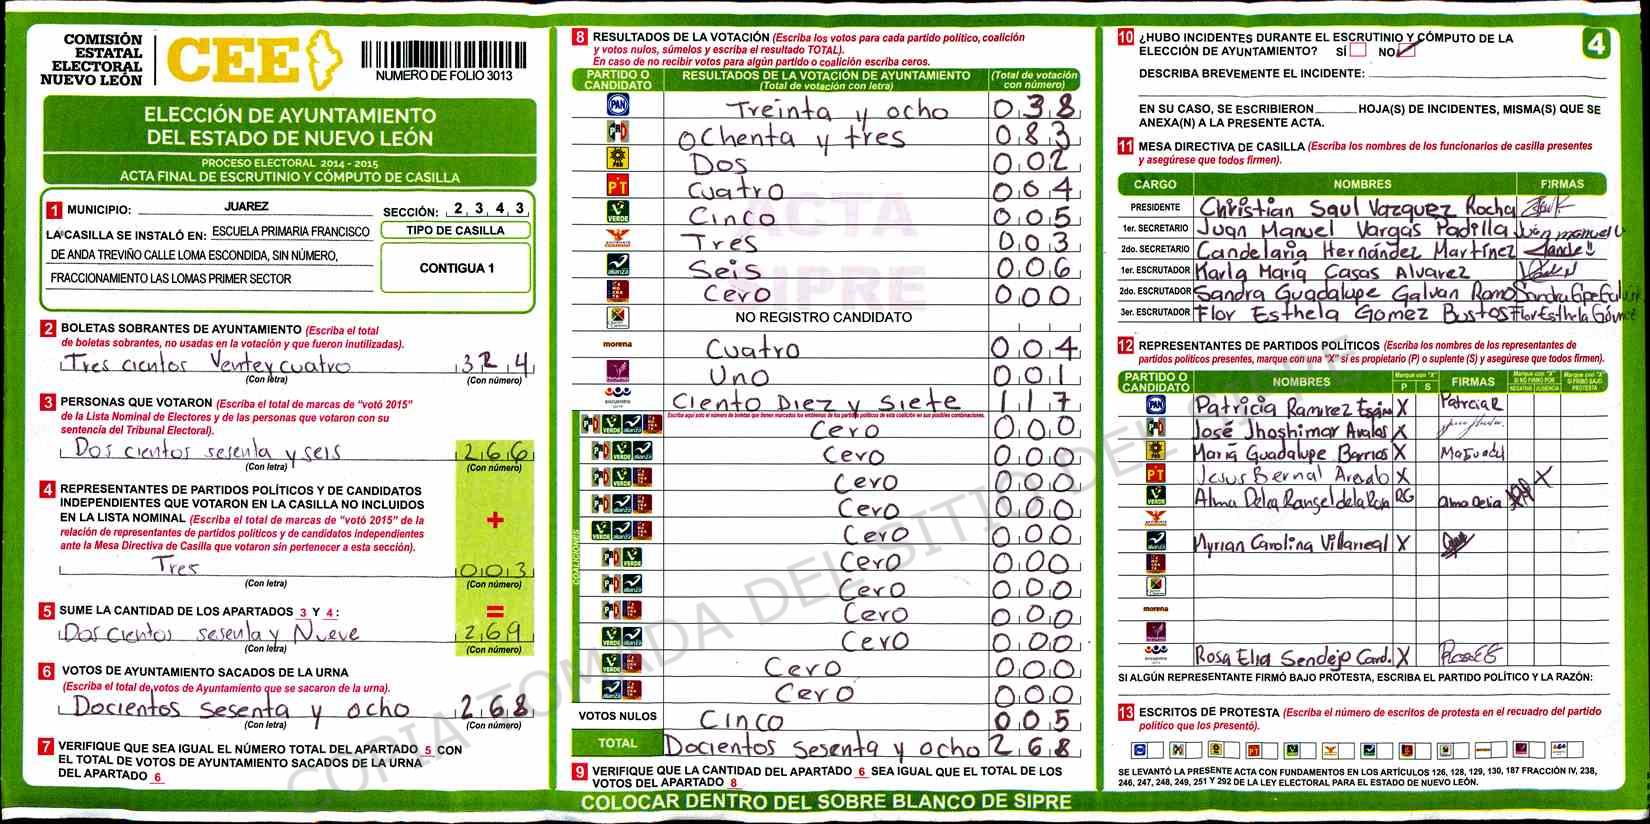 COMISIÓN
ESTATAL
ELECTORAL
NUEVO LEÓN
CEE
NUMERO DE FOLIO 3013
ELECCIÓN DE AYUNTAMIENTO
DEL ESTADO DE NUEVO LEÓN
PROCESO ELECTORAL 2014 - 2015
ACTA FINAL DE ESCRUTINIO Y CÓMPUTO DE CASILLA
1 MUNICIPIO: JUAREZ
SECCIÓN: 2 3 4 3
LA CASILLA SE INSTALÓ EN: ESCUELA PRIMARIA FRANCISCO
DE ANDA TREVIÑO CALLE LOMA ESCONDIDA, SIN NÚMERO,
FRACCIONAMIENTO LAS LOMAS PRIMER SECTOR
TIPO DE CASILLA
CONTIGUA 1
2 BOLETAS SOBRANTES DE AYUNTAMIENTO (Escriba el total
de boletas sobrantes, no usadas en la votación y que fueron inutilizadas).
Tres cientos Ventey cuatro 3 2 4
(Con letra) (Con número)
3 PERSONAS QUE VOTARON (Escriba el total de marcas de "votó 2015"
de la Lista Nominal de Electores y de las personas que votaron con su
sentencia del Tribunal Electoral).
Dos cientos sesenta y seis 2 6 6
(Con letra) (Con número)
4 REPRESENTANTES DE PARTIDOS POLÍTICOS Y DE CANDIDATOS
INDEPENDIENTES QUE VOTARON EN LA CASILLA NO INCLUIDOS
EN LA LISTA NOMINAL (Escriba el total de marcas de "votó 2015" de la
relación de representantes de partidos políticos y de candidatos independientes
ante la Mesa Directiva de Casilla que votaron sin pertenecer a esta sección).
+
Tres 0 0 3
(Con letra) (Con número)
5 SUME LA CANTIDAD DE LOS APARTADOS 3 Y 4 :
=
Dos cientos sesenta y Nueve 2 6 9
(Con letra) (Con número)
6 VOTOS DE AYUNTAMIENTO SACADOS DE LA URNA
(Escriba el total de votos de Ayuntamiento que se sacaron de la urna).
Docientos sesenta y ocho 2 6 8
(Con letra) (Con número)
7 VERIFIQUE QUE SEA IGUAL EL NÚMERO TOTAL DEL APARTADO 5 CON
EL TOTAL DE VOTOS DE AYUNTAMIENTO SACADOS DE LA URNA
DEL APARTADO 6
8 RESULTADOS DE LA VOTACIÓN (Escriba los votos para cada partido político, coalición
y votos nulos, súmelos y escriba el resultado TOTAL).
En caso de no recibir votos para algún partido o coalición escriba ceros.
PARTIDO O CANDIDATO
RESULTADOS DE LA VOTACIÓN DE AYUNTAMIENTO
(Total de votación con letra)
(Total de votación con número)
PAN Treinta y ocho 0 3 8
PRD ochenta y tres 0 8 3
Dos 0 0 2
PT Cuatro 0 0 4
VERDE Cinco 0 0 5
Tres 0 0 3
alianza Seis 0 0 6
Cero 0 0 0
NO REGISTRO CANDIDATO
morena Cuatro 0 0 4
Uno 0 0 1
encuentro Ciento Diez y Siete 1 1 7
Escriba aquí solo el número de boletas que tienen marcados los emblemas de los partidos políticos de esta coalición en sus posibles combinaciones.
COALICIONES
Cero 0 0 0
Cero 0 0 0
Cero 0 0 0
Cero 0 0 0
Cero 0 0 0
Cero 0 0 0
Cero 0 0 0
Cero 0 0 0
Cero 0 0 0
Cero 0 0 0
Cero 0 0 0
VOTOS NULOS Cinco 0 0 5
TOTAL Docientos sesenta y ocho 2 6 8
9 VERIFIQUE QUE LA CANTIDAD DEL APARTADO 6 SEA IGUAL QUE EL TOTAL DE LOS
VOTOS DEL APARTADO 8
COLOCAR DENTRO DEL SOBRE BLANCO DE SIPRE
ACTA
SIPRE
COPIA TOMADA DEL SITIO DEL SIPRE
10 ¿HUBO INCIDENTES DURANTE EL ESCRUTINIO Y CÓMPUTO DE LA
ELECCIÓN DE AYUNTAMIENTO? SÍ NO
4
DESCRIBA BREVEMENTE EL INCIDENTE:
EN SU CASO, SE ESCRIBIERON HOJA(S) DE INCIDENTES, MISMA(S) QUE SE
ANEXA(N) A LA PRESENTE ACTA.
11 MESA DIRECTIVA DE CASILLA (Escriba los nombres de los funcionarios de casilla presentes
y asegúrese que todos firmen).
CARGO NOMBRES FIRMAS
PRESIDENTE Christian Saul Vazquez Rocha
1er. SECRETARIO Juan Manuel Vargas Padilla Juan manuel V
2do. SECRETARIO Candelaria Hernández Martínez
1er. ESCRUTADOR Karla María Casas Alvarez
2do. ESCRUTADOR Sandra Guadalupe Galvan Ramo
3er. ESCRUTADOR Flor Esthela Gomez Bustos Flor Esthela Gómez
12 REPRESENTANTES DE PARTIDOS POLÍTICOS (Escriba los nombres de los representantes de
partidos políticos presentes, marque con una "X" si es propietario (P) o suplente (S) y asegúrese que todos firmen).
PARTIDO O CANDIDATO
NOMBRES
Marque con "X"
P S
FIRMAS
Marque con "X" SI NO FIRMÓ POR
NEGATIVA AUSENCIA
Marque con "X" SI FIRMÓ BAJO PROTESTA
PAN Patricia Ramirez X Patricia R
José Jhoshimar Avalos X
María Guadalupe Barrios X
PT Jesus Bernal X X
VERDE Alma Delia Rangel de la Rosa RG Alma Delia
Myrian Carolina Villarreal X
morena
Rosa Elia Sendejo Card. X
SI ALGÚN REPRESENTANTE FIRMÓ BAJO PROTESTA, ESCRIBA EL PARTIDO POLÍTICO Y LA RAZÓN:
13 ESCRITOS DE PROTESTA (Escriba el número de escritos de protesta en el recuadro del partido
político que los presentó).
SE LEVANTÓ LA PRESENTE ACTA CON FUNDAMENTOS EN LOS ARTÍCULOS 126, 128, 129, 130, 187 FRACCIÓN IV, 238,
246, 247, 248, 249, 251 Y 292 DE LA LEY ELECTORAL PARA EL ESTADO DE NUEVO LEÓN.